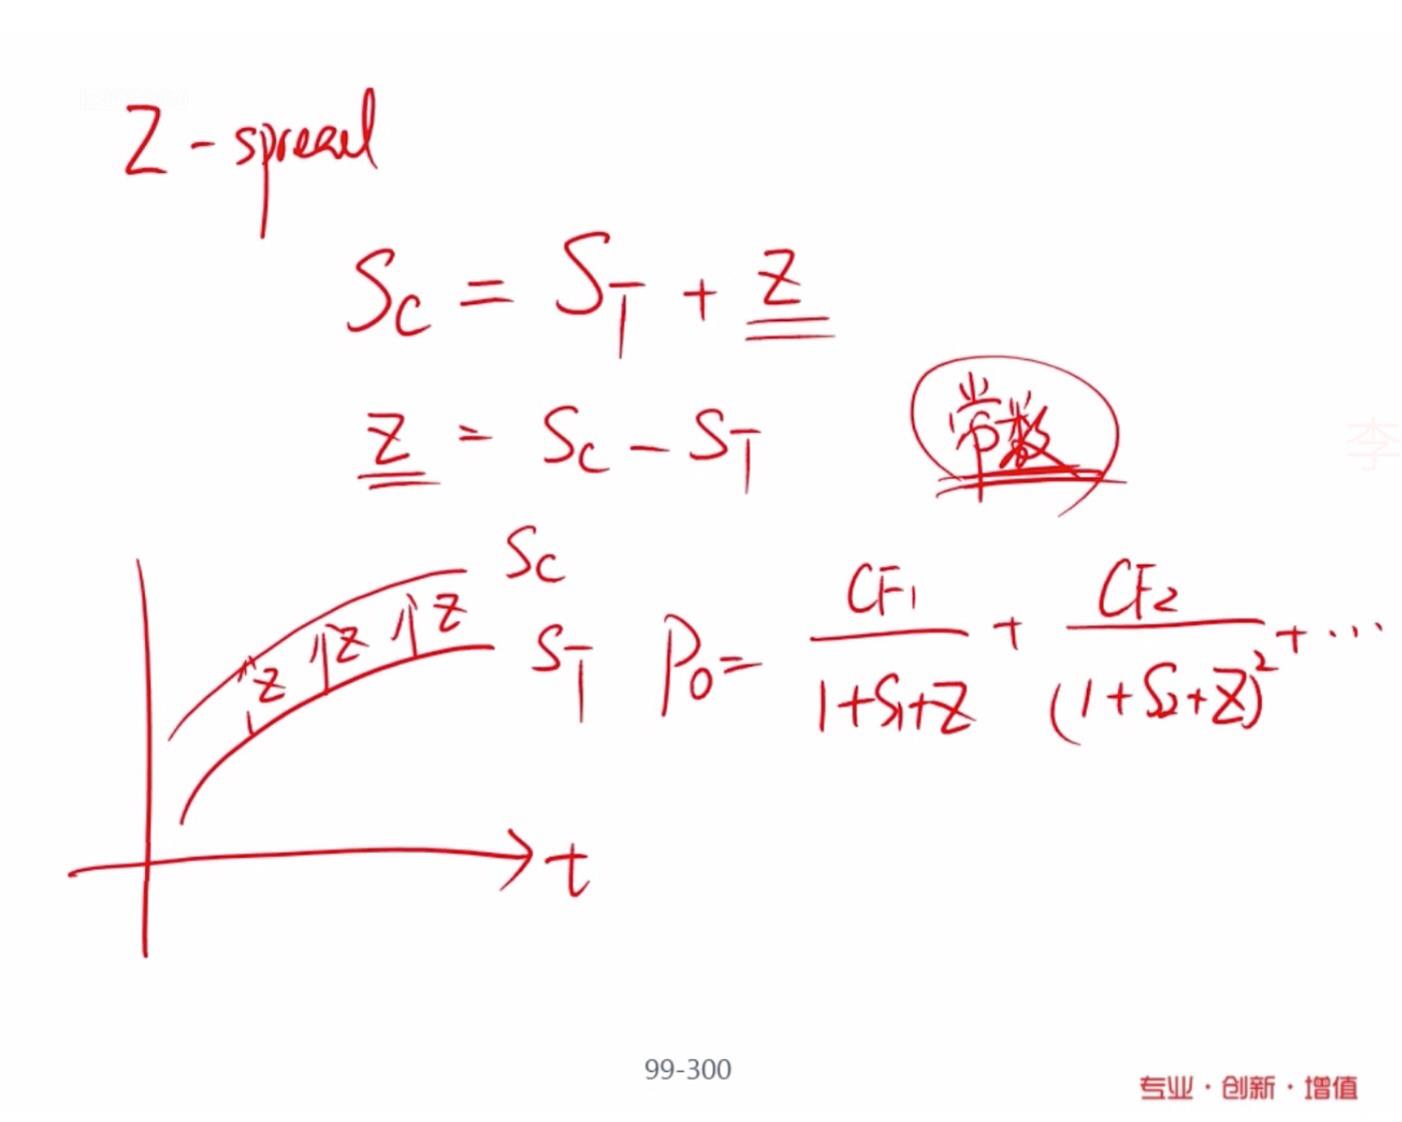 Z-spread
Sc = S_T + Z
Z = Sc - S_T
常数
Sc
Z Z Z
S_T
P₀ = CF₁/(1+S₁+Z) + CF₂/(1+S₂+Z)² + ...
t
99-300
专业·创新·增值
李